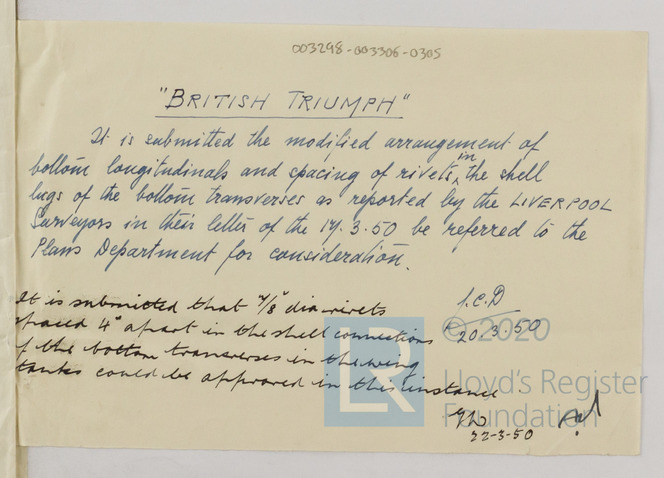 003298-003306-0305
"BRITISH TRIUMPH"
It is submitted the modified arrangement of
bottom longitudinals and spacing of rivets in the shell
lugs of the bottom transverses as reported by the LIVERPOOL
Surveyors in their letter of the 17.3.50 be referred to the
Plans Department for consideration.
J.C.D
20.3.50
It is submitted that 7/8" dia rivets
spaced 4" apart in the shell connections
of the bottom transverses in the wing
tanks could be approved in this instance
22-3-50
© 2020
LR
Lloyd's Register
Foundation